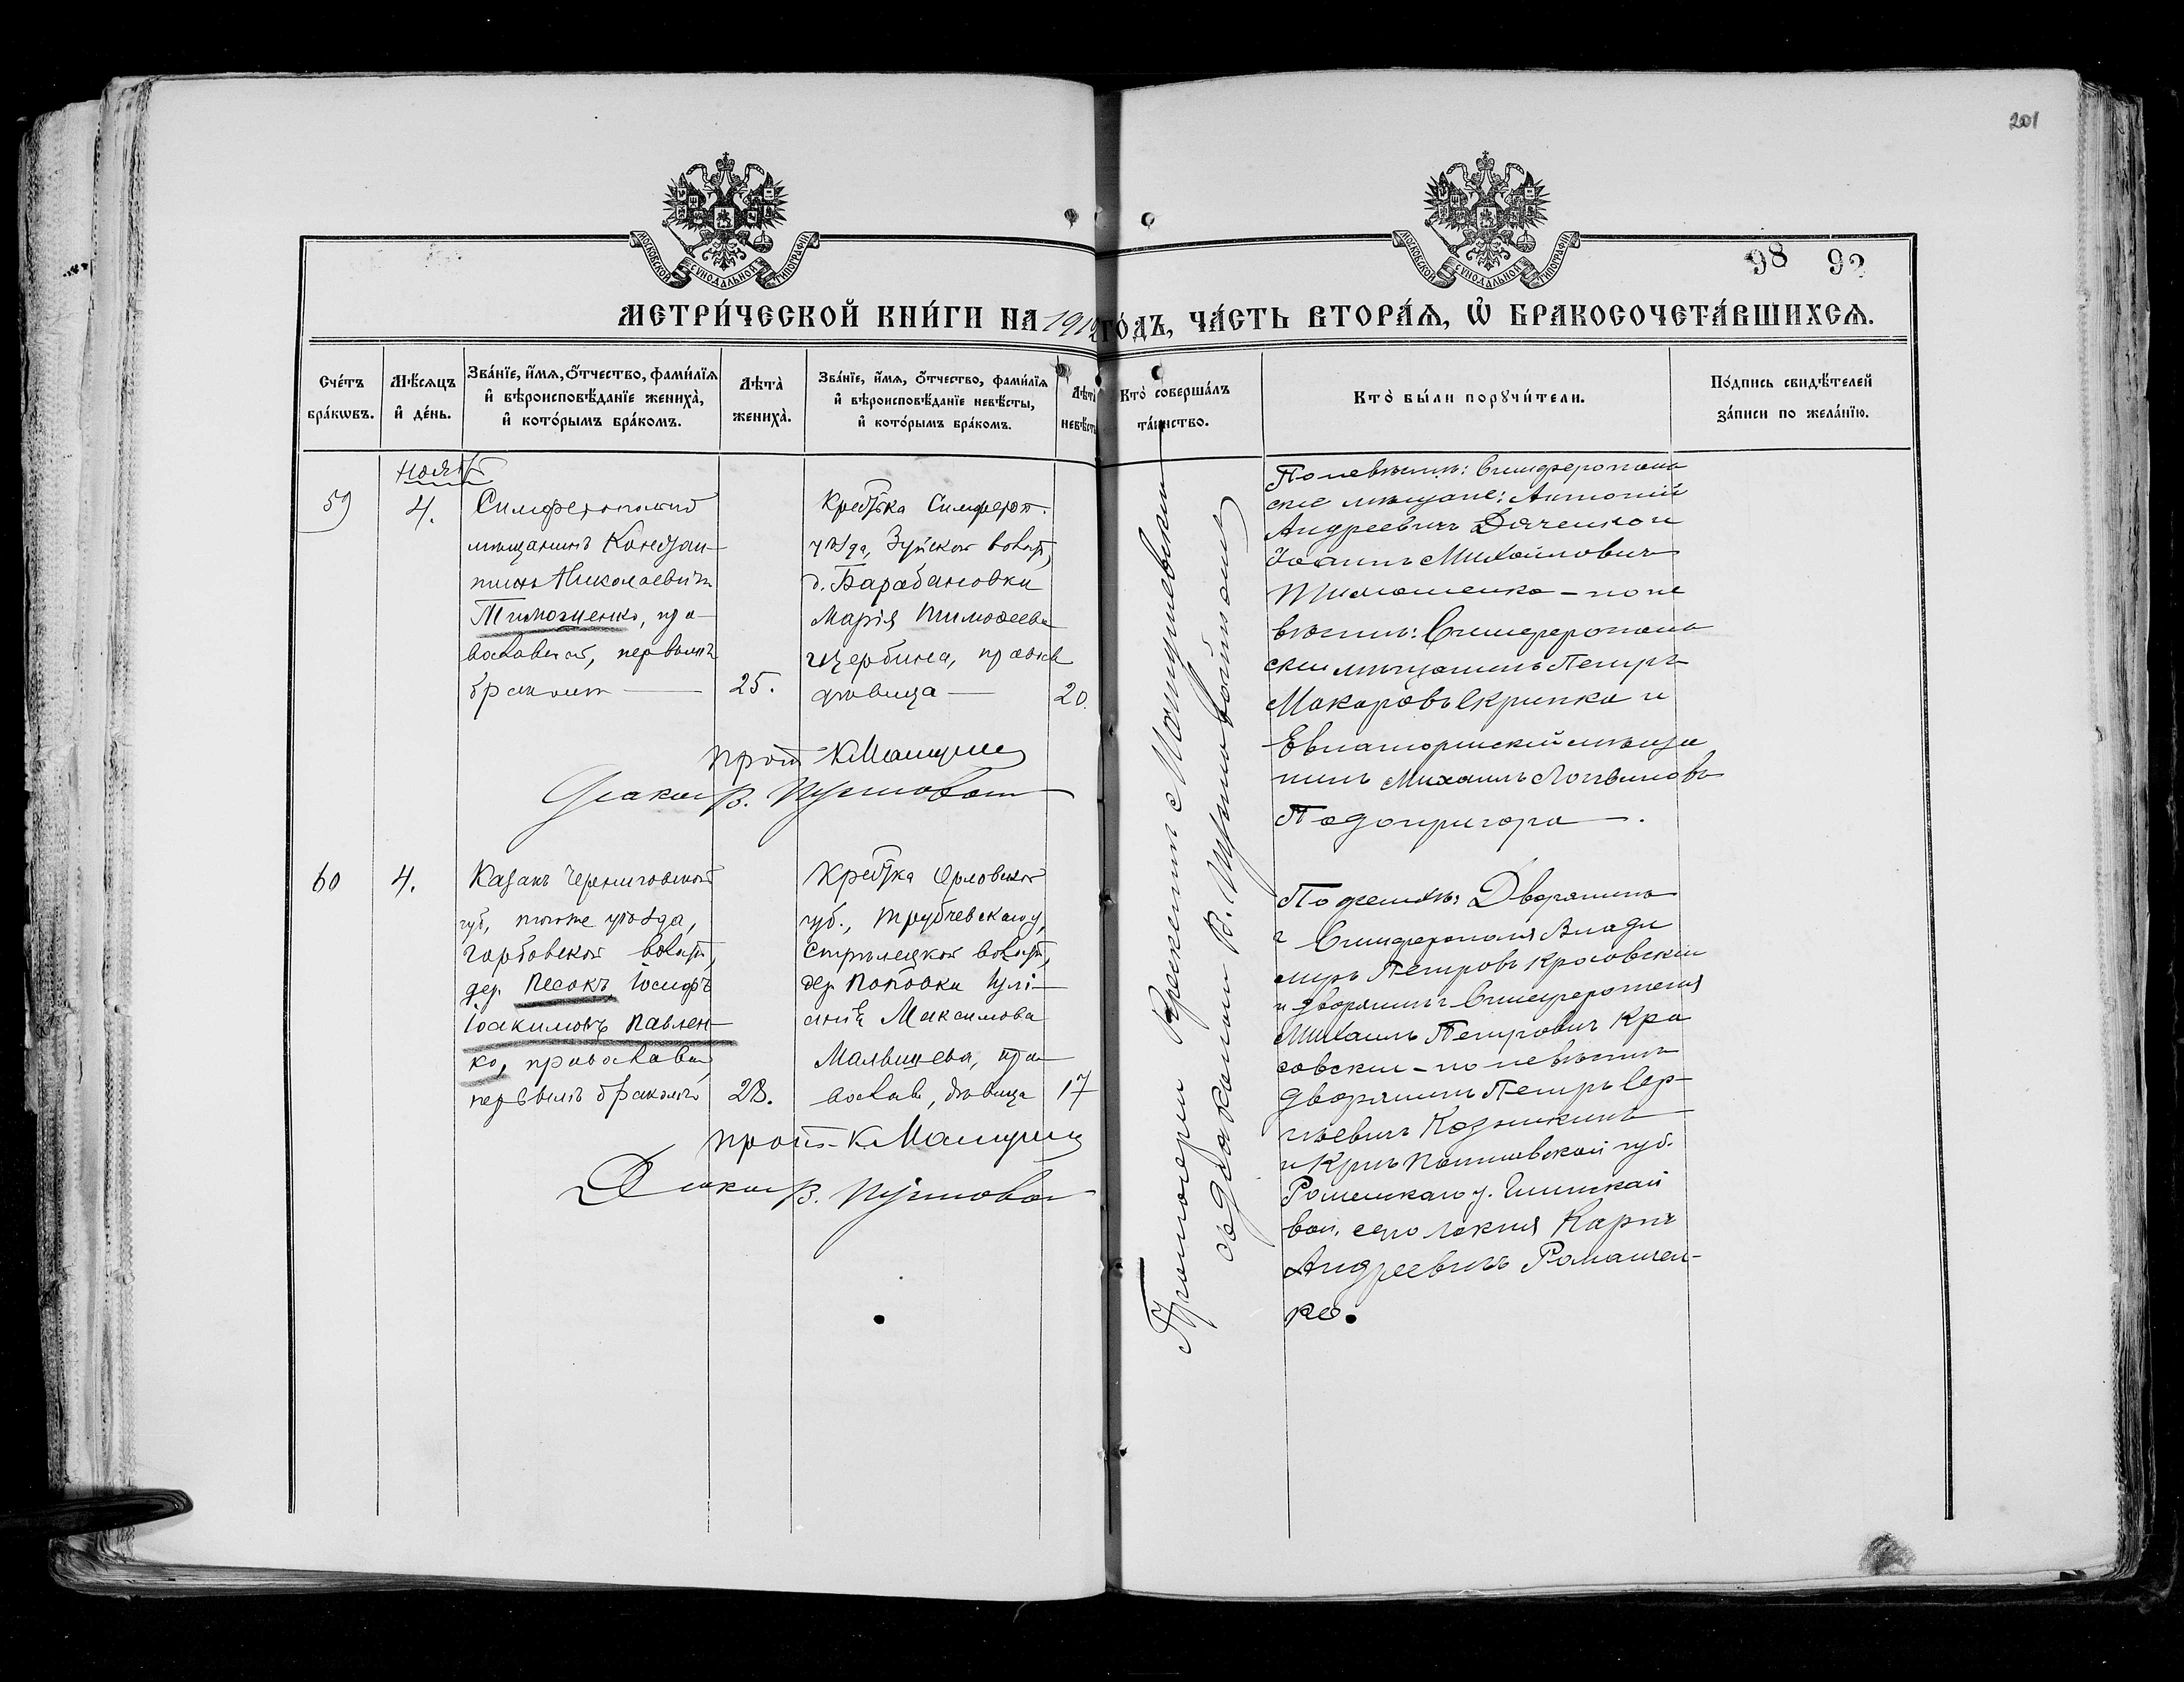 201
МОСКОВСКОЙ СѴНОДАЛЬНОЙ ТИПОГРАФІИ
МОСКОВСКОЙ СѴНОДАЛЬНОЙ ТИПОГРАФІИ
98 92
МЕТРИ́ЧЕСКОЙ КНИ́ГИ НА 1912 ГО́ДЪ, ЧА́СТЬ ВТОРА́Ѧ, Ѡ҆ БРАКОСОЧЕТА́ВШИХСѦ.
Сче́тъ бра́кѡвъ.
Мѣ́сѧцъ и҆ де́нь.
Зва́нїе, и҆́мѧ, ѻ҆́тчество, фами́лїѧ
и҆ вѣроисповѣ́данїе жениха̀,
и҆ кото́рымъ бра́комъ.
Лѣта̀ жениха̀.
Зва́нїе, и҆́мѧ, ѻ҆́тчество, фами́лїѧ
и҆ вѣроисповѣ́данїе невѣ́сты,
и҆ кото́рымъ бра́комъ.
Лѣта̀ невѣ́сты
Кто̀ соверша́лъ та́инство.
Кто̀ бы́ли порꙋчи́тели.
По́дпись свидѣ́телей за́писи по жела́нїю.
59
Нояб
4.
Симферопольскій
мѣщанинъ Констан-
тинъ Николаевичъ
Тимошенко, пра-
вославный, первымъ
бракомъ —
25.
Крестьянка Симфероп.
уѣзда, Зуйской волости,
д. Барабановки
Марія Тимофеева
Щербина, правосл
дѣвица —
20.
прот. К Машуки
Діаконъ В. Пустовой
По невѣстѣ: Симферополь
скіе мѣщане: Антоній
Андреевичъ Дяченко и
Іоаннъ Михайловичъ
Тимошенко – по не
вѣстѣ: Симферополь
скій мѣщанинъ Петръ
Макаровъ Скрипка и
Евпаторійскій мѣща
нинъ Михаилъ Логвиновъ
Подопригора —.
Протоіерей
съ діакономъ В. Пустовойтовымъ
60
4.
Казакъ Черниговской
губ, того же уѣзда,
Горбовской волости,
дер. Песокъ, Іосифъ
Іоакимовъ Павлен-
ко, православн,
первымъ бракомъ
23.
Крестьянка Орловской
губ., Трубчевскаго у,
Стрѣлецкой волости,
дер. Поповки Іулі-
анія Максимова
Малышева, пра-
вослав, дѣвица
17
прот. К. Машуки
Діаконъ В. Пустовой
По женихѣ: Дворянинъ
г Симферополя Влади
міръ Петровъ Красовскій
и дворянинъ г Симферополя
Михаилъ Петровичъ Кра
совскій – по невѣстѣ
дворянинъ Петръ Сер-
гѣевичъ
и Крнъ Полтавской губ.
Роменскаго у.
вол. село Локня Карпъ
Андреевичъ Ромашен-
ко.